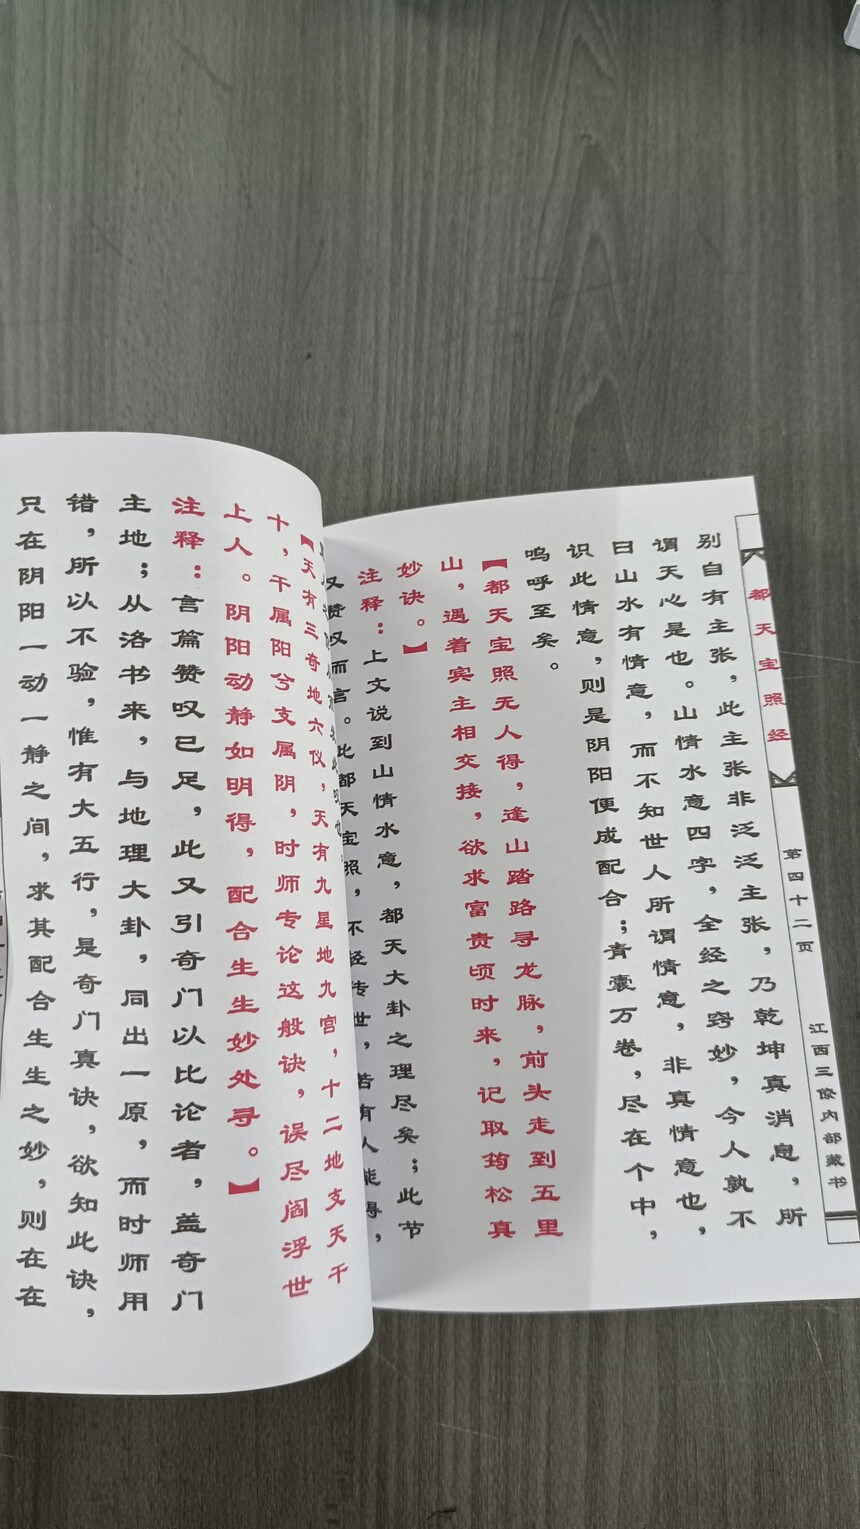 都天宝照经
第四十二页
江西三僚内部藏书
别自有主张，此主张非泛泛主张，乃乾坤真消息，所
谓天心是也。山情水意四字，全经之窍妙，今人孰不
曰山水有情意，而不知世人所谓情意，非真情意也，
识此情意，则是阴阳便成配合；青囊万卷，尽在个中，
呜呼至矣。
【都天宝照无人得，逢山踏路寻龙脉，前头走到五里
山，遇着宾主相交接，欲求富贵顷时来，记取筠松真
妙诀。】
注释：上文说到山情水意，都天大卦之理尽矣；此节
又赞叹而言。此都天宝照，不轻传世，若有人能得，
【天有三奇地六仪，天有九星地九宫，十二地支天干
十，干属阳兮支属阴，时师专论这般诀，误尽阎浮世
上人。阴阳动静如明得，配合生生妙处寻。】
注释：言篇赞叹已足，此又引奇门以比论者，盖奇门
主地；从洛书来，与地理大卦，同出一原，而时师用
错，所以不验，惟有大五行，是奇门真诀，欲知此诀，
只在阴阳一动一静之间，求其配合生生之妙，则在在